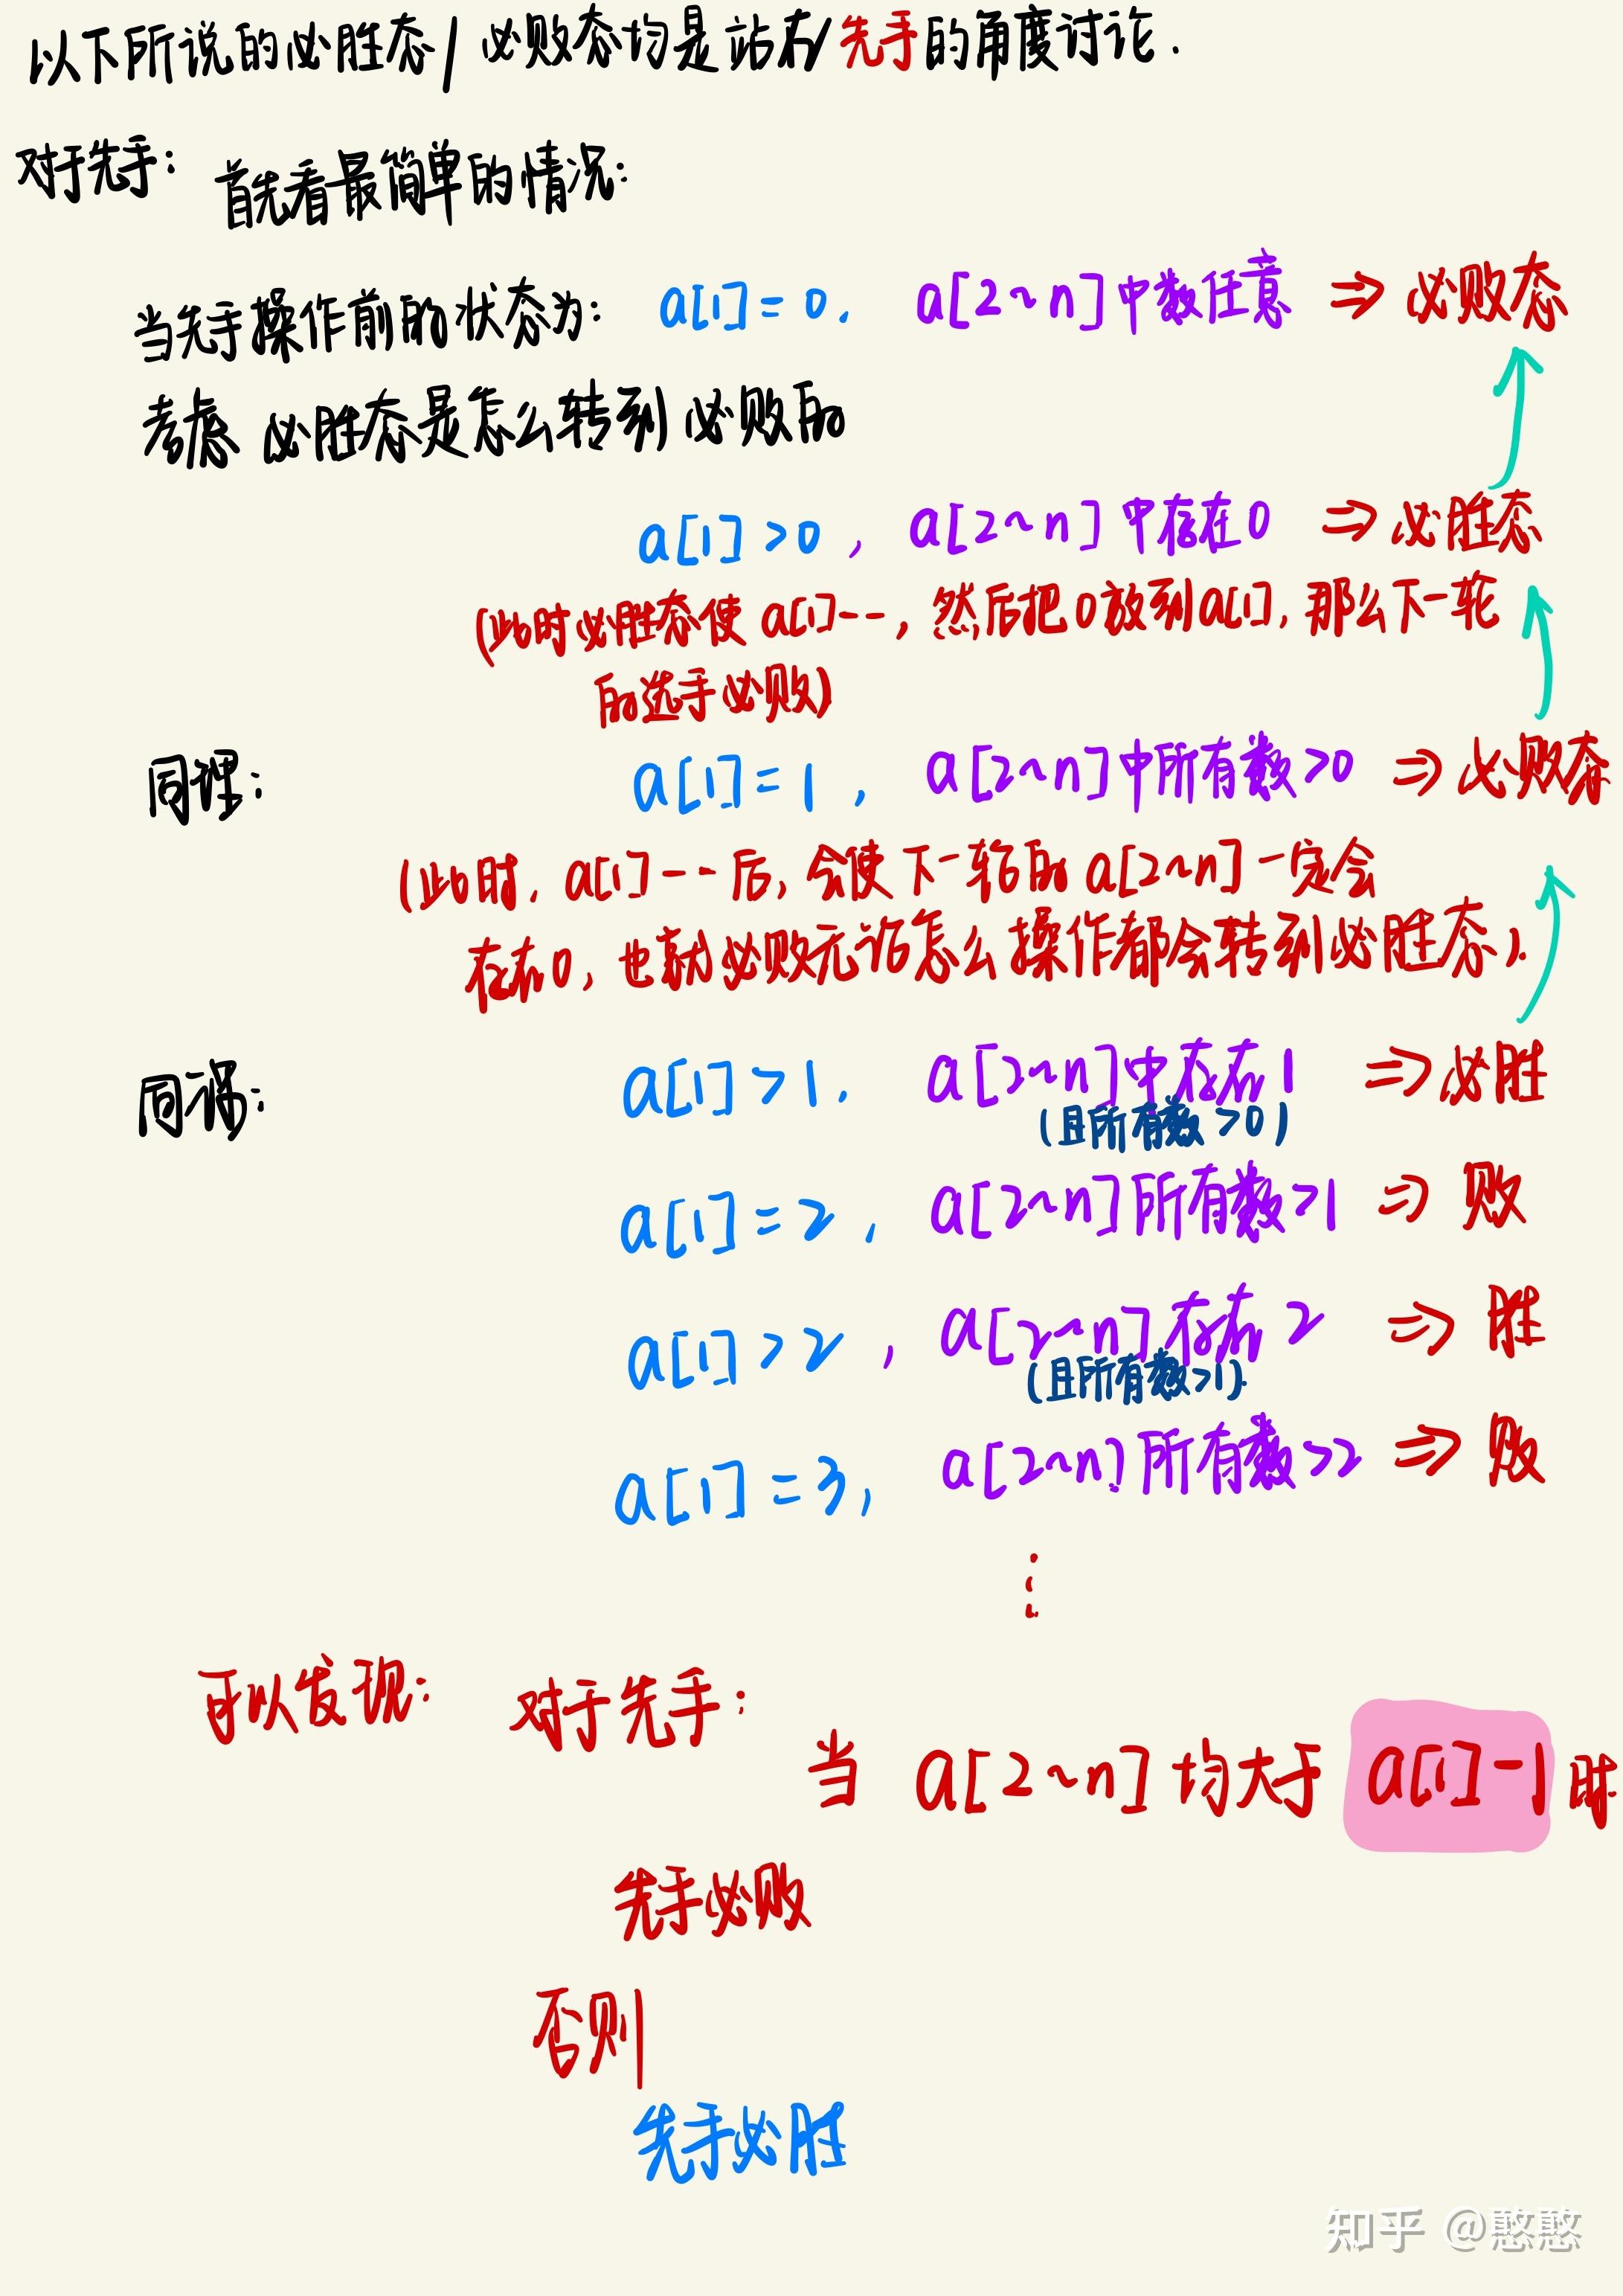 以下所说的必胜态/必败态均是站在先手的角度讨论.
对于先手: 首先看最简单的情况:
当先手操作前的状态为: a[1]=0, a[2~n]中数任意 ⇒ 必败态
考虑 必胜态是怎么转到必败的
a[1]>0, a[2~n]中存在0 ⇒ 必胜态
(此时必胜态使a[1]--,然后把0放到a[1],那么下一轮
的选手必败)
同理: a[1]=1, a[2~n]中所有数>0 ⇒ 必败态
(此时, a[1]--后, 会使下一轮的a[2~n]一定会
存在0, 也就必败无论怎么操作都会转到必胜态).
同理: a[1]>1, a[2~n]中存在1 ⇒ 必胜
(且所有数>0)
a[1]=2, a[2~n]所有数>1 ⇒ 败
a[1]>2, a[2~n]存在2 ⇒ 胜
(且所有数>1).
a[1]=3, a[2~n]所有数>2 ⇒ 败
⋮
可以发现: 对于先手:
当 a[2~n] 均大于 a[1]-1 时
先手必败
否则
先手必胜
知乎 @憨憨